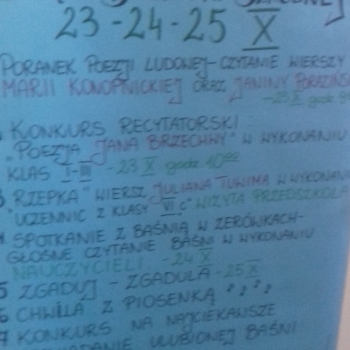 23-24-25 X
PORANEK POEZJI LUDOWEJ-CZYTANIE WIERSZY
MARII KONOPNICKIEJ ORAZ JANINY
KONKURS RECYTATORSKI
„POEZJA JANA BRZECHWY" W WYKONANIU
KLAS I-III -23 X godz 10⁰⁰
„RZEPKA" WIERSZ JULIANA TUWIMA W WYKONANIU
UCZENNIC Z KLASY VI c" WIZYTA PRZEDSZKOLA
SPOTKANIE Z BAŚNIĄ W ZERÓWKACH-
GŁOŚNE CZYTANIE BAŚNI W WYKONANIU
NAUCZYCIELI -24 X
5 ZGADUJ-ZGADULA -25 X
6 CHWILA Z PIOSENKĄ ♪ ♪ ♪
7 KONKURS NA NAJCIEKAWSZE
ULUBIONEJ BAŚNI